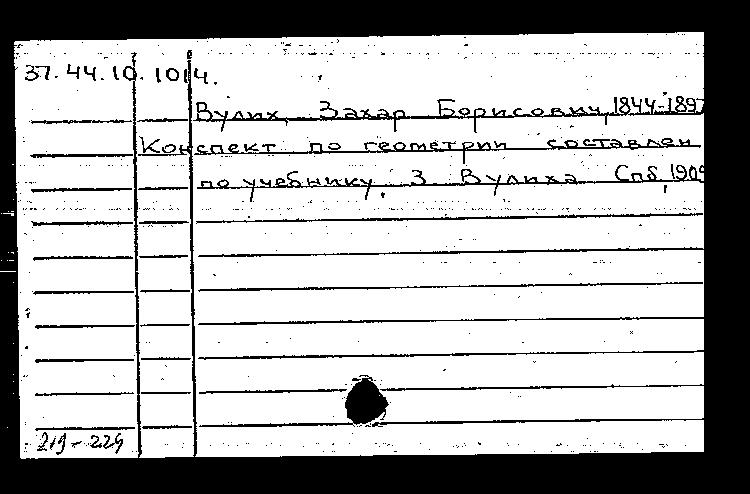 37.44.10.1014.
Вулих, Захар Борисович, 1844-1897
Конспект по геометрии составлен
по учебнику З Вулиха Спб, 1909
219-229